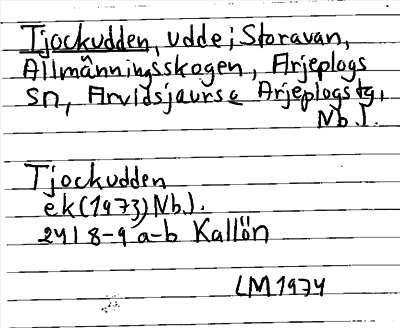 Tjockudden, udde i Storavan,
Allmänningsskogen, Arjeplogs
sn, Arvidsjaurs o Arjeplogs tg,
Nb.l.
Tjockudden
ek (1973) Nb.l.
24I 8-9 a-b Kallön
LM 1974